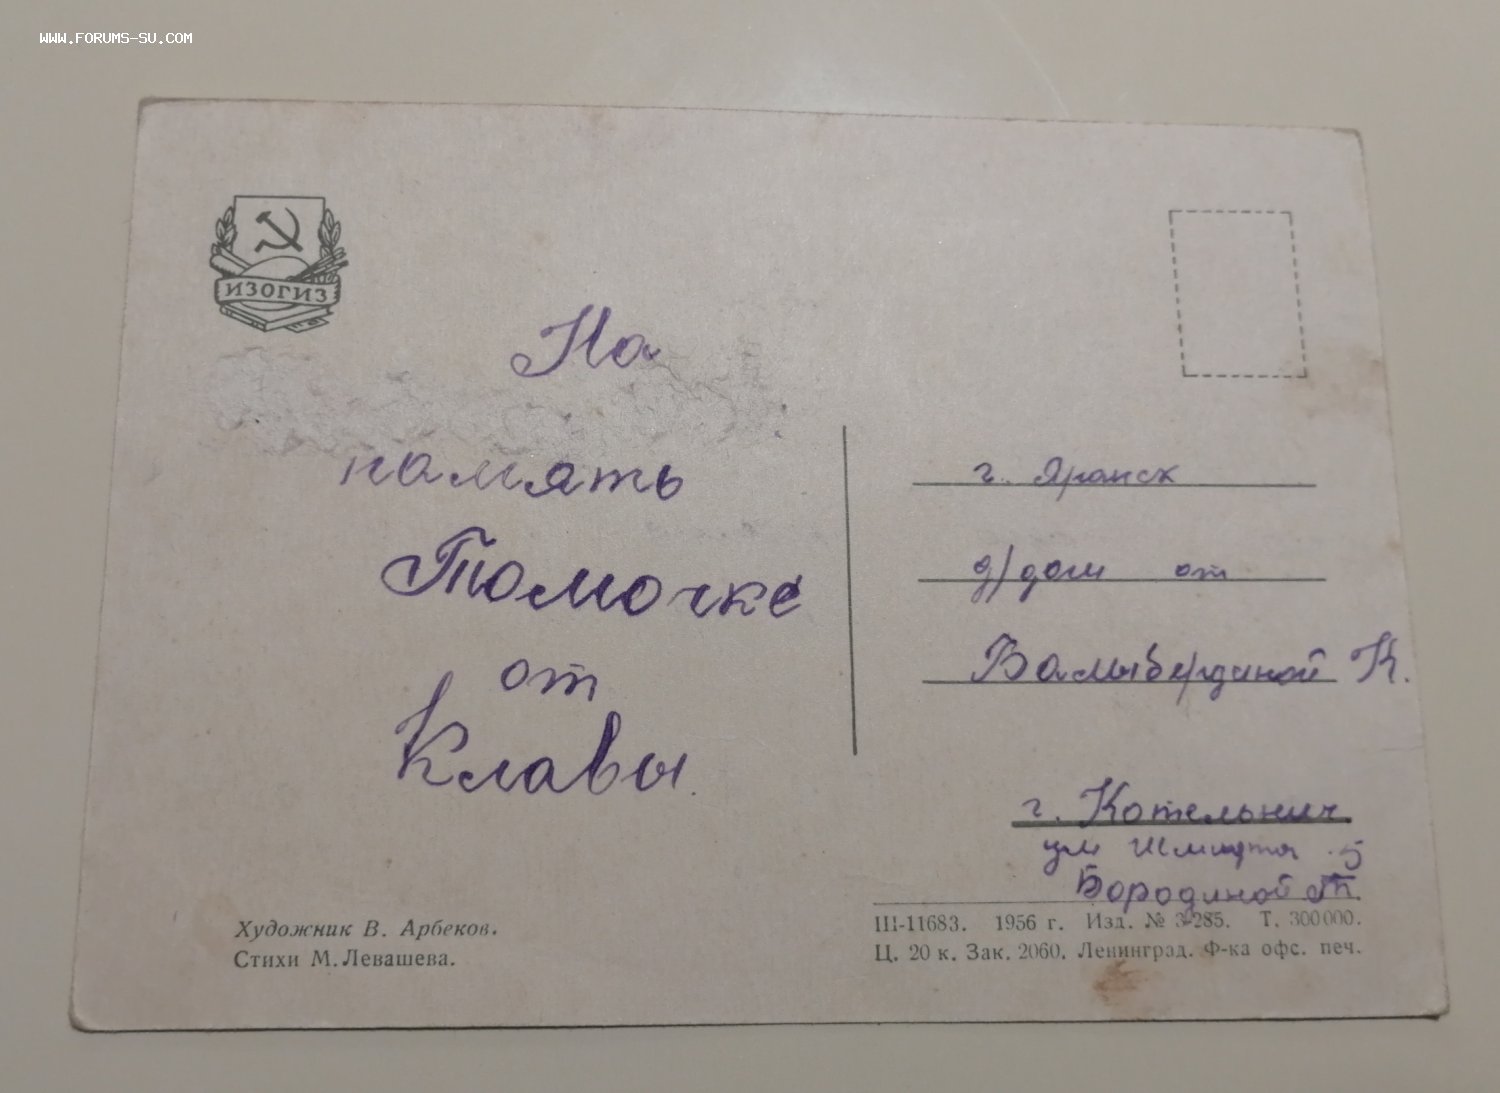 WWW.FORUMS-SU.COM
ИЗОГИЗ
На
память
Томочке
от
Клавы.
г. Яранск
д/дом от
Вамыбердиной К.
г. Котельнич
ул Шмидта 5
Бородиной Т.
Художник В. Арбеков.
Стихи М. Левашева.
Ш-11683. 1956 г. Изд. № 3-285. Т. 300000.
Ц. 20 к. Зак. 2060. Ленинград. Ф-ка офс. печ.